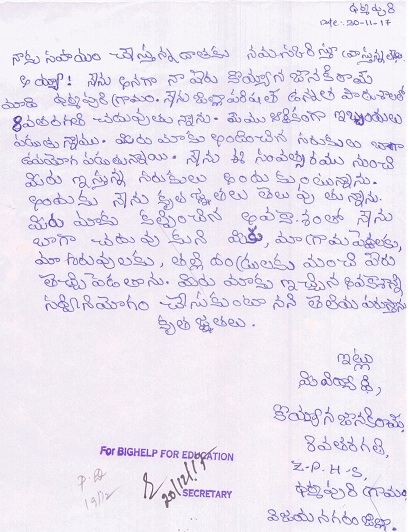 ధర్మపురి
Dt: -20-11-17
నాకు సహాయం చేస్తున్న దాతకు నమస్కరిస్తూ వ్రాస్తున్న లేఖ
అయ్యా! నేను అనగా నా పేరు కొయ్యాన జానకీరామ్
మాది ధర్మపురి గ్రామం. నేను జిల్లా పరిషత్ ఉన్నత పాఠశాలలో
8వతరగతి చదువుతున్నాను. మేము ఆర్థికంగా ఇబ్బందులు
పడుతున్నాము. మీరు మాకు అందించిన సరుకులు బాగా
ఉపయోగ పడుతున్నాయి. నేను ఈ సంవత్సరము నుంచి
మీరు ఇస్తున్న సరుకులు అందుకుంటున్నాను.
అందుకు నేను కృతజ్ఞతలు తెలుపుతున్నాను.
మీరు మాకు కల్పించిన అవకాశంతో నేను
బాగా చదువుకుని మీకు, మా గ్రామ పెద్దలకు,
మా గురువులకు, తల్లిదండ్రులకు మంచి పేరు
తెచ్చిపెడతాను. మీరు మాకు ఇచ్చిన అవకాశాన్ని
సద్వినియోగం చేసుకుంటానని తెలియపరుస్తున్నాను
కృతజ్ఞతలు.
ఇట్లు
మీ విద్యార్థి,
కొయ్యాన జానకీరామ్,
8వతరగతి,
Z-P-H-S,
ధర్మపురి గ్రామం
విజయనగరం జిల్లా.
For BIGHELP FOR EDUCATION
20/12/17
SECRETARY
19/12